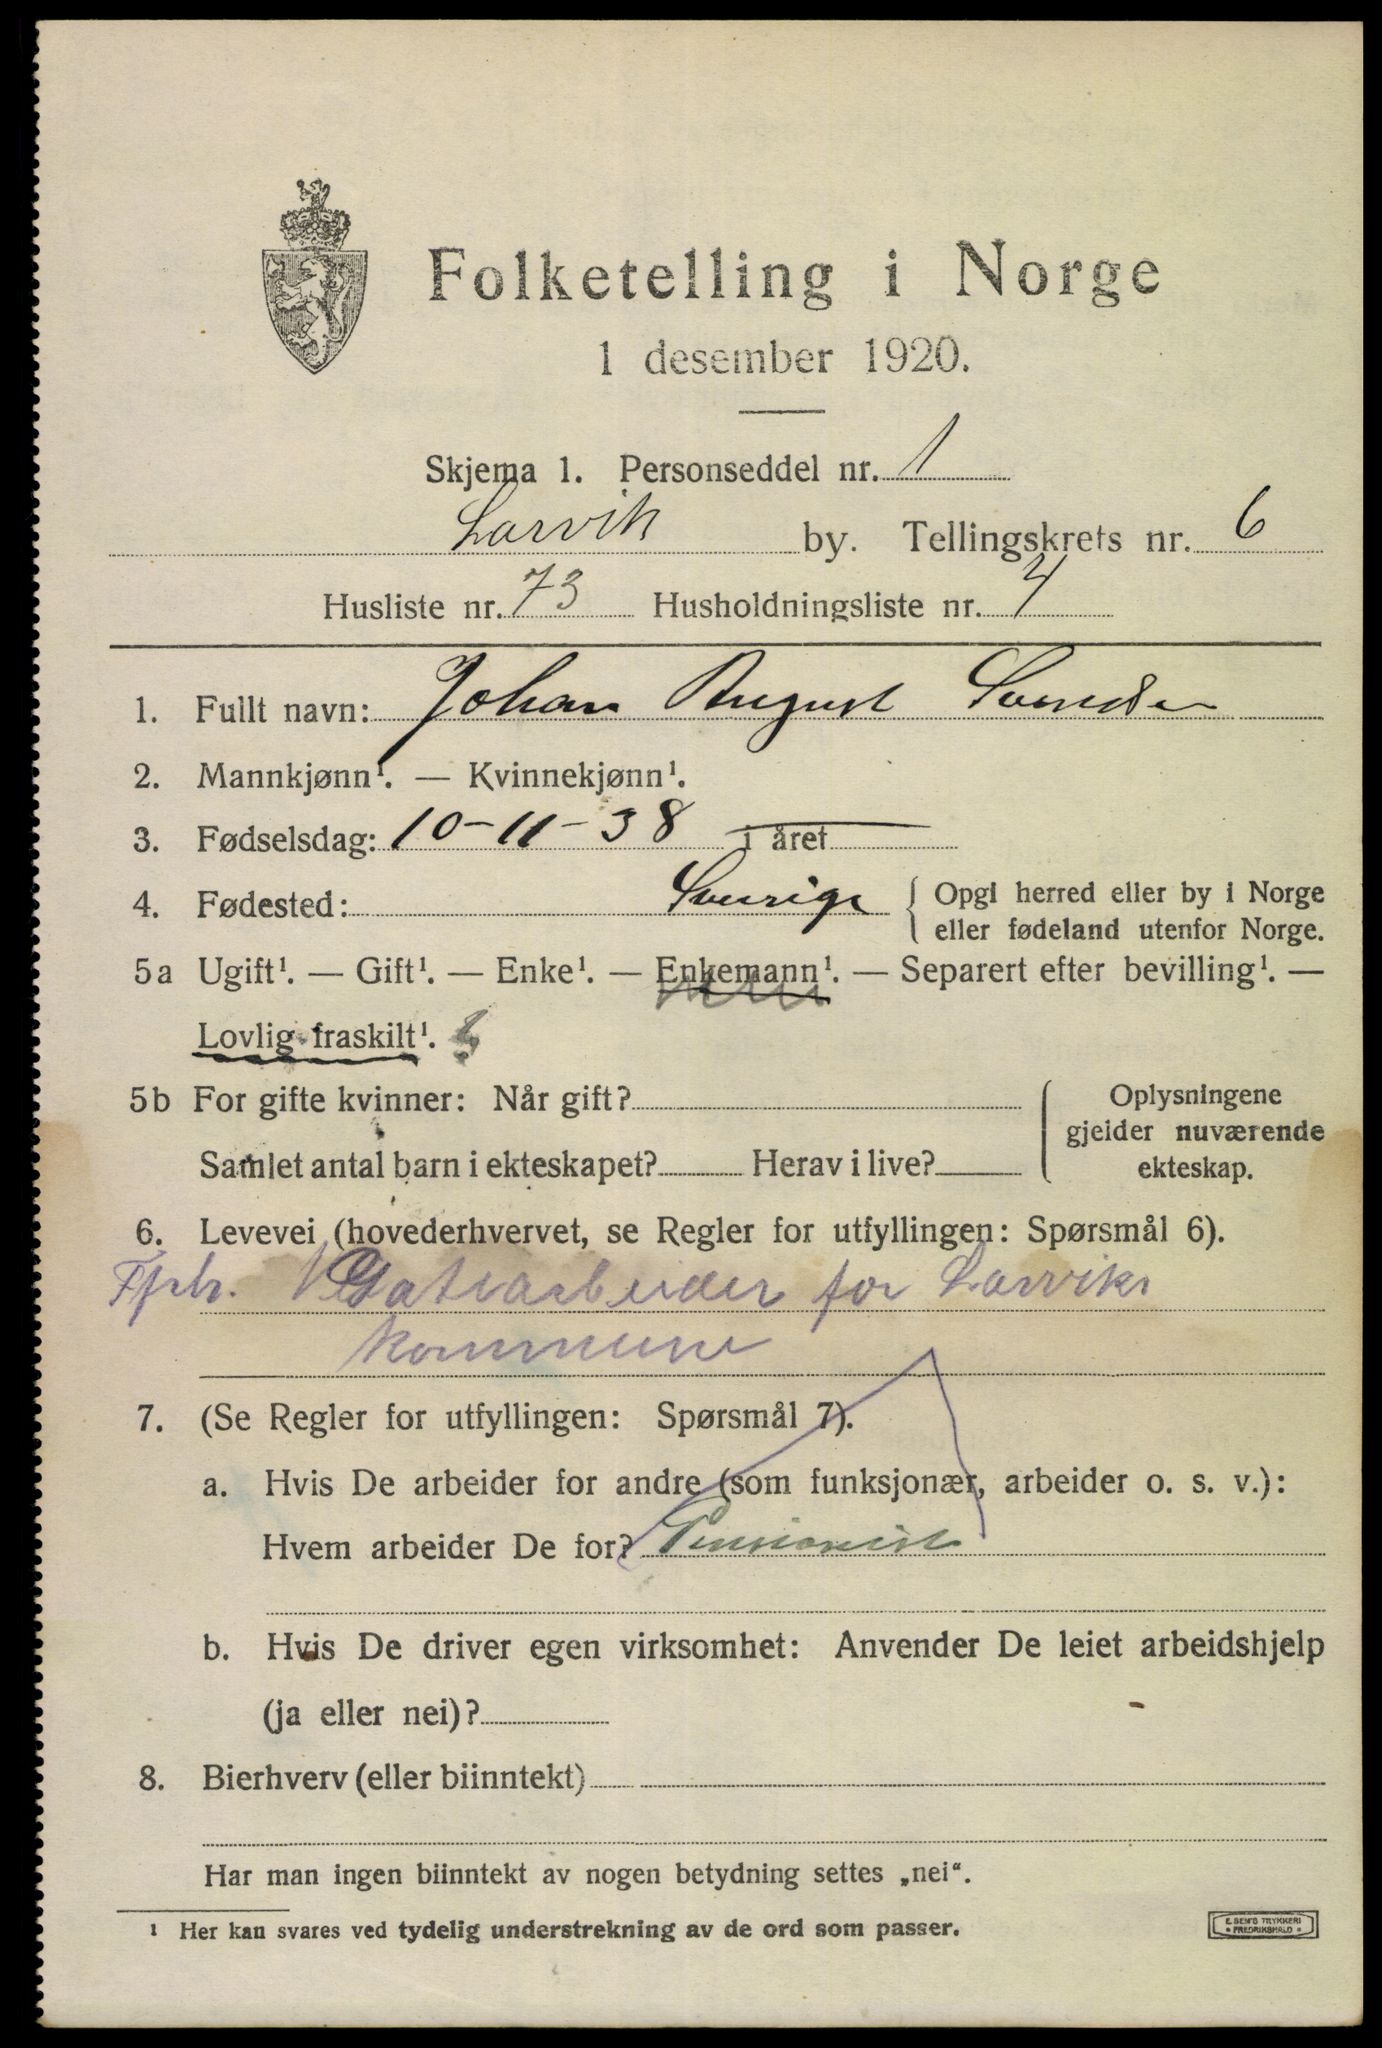 Folketelling i Norge
1 desember 1920.
Skjema 1. Personseddel nr. 1
Larvik by. Tellingskrets nr. 6
Husliste nr. 73 Husholdningsliste nr. 4
1. Fullt navn: Johan August Svendsen
2. Mannkjønn¹. — Kvinnekjønn¹.
3. Fødselsdag: 10-11-38 i året
4. Fødested: Sverige { Opgi herred eller by i Norge
eller fødeland utenfor Norge.
5a Ugift¹. — Gift¹. — Enke¹. — Enkemann¹. — Separert efter bevilling¹. —
Lovlig fraskilt¹.
5b For gifte kvinner: Når gift? ( Oplysningene
gjelder nuværende
Samlet antal barn i ekteskapet? Herav i live? ekteskap.
6. Levevei (hovederhvervet, se Regler for utfyllingen: Spørsmål 6).
Gatearbeider for Larviks
kommune
7. (Se Regler for utfyllingen: Spørsmål 7).
a. Hvis De arbeider for andre (som funksjonær, arbeider o. s. v.):
Hvem arbeider De for? Pensionist
b. Hvis De driver egen virksomhet: Anvender De leiet arbeidshjelp
(ja eller nei)?
8. Bierhverv (eller biinntekt)
Har man ingen biinntekt av nogen betydning settes „nei“.
¹ Her kan svares ved tydelig understrekning av de ord som passer.
E. SEM'S TRYKKERI
FREDRIKSHALD